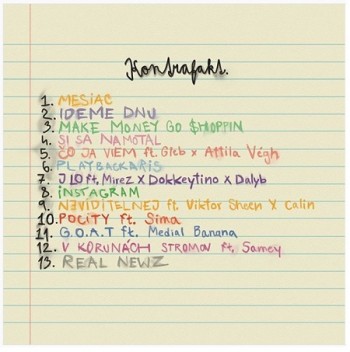 Kontrafakt.
1. MESIAC
2. IDEME DNU
3. MAKE MONEY GO $HOPPIN
4. SI SA NAMOTAL
5. ČO JA VIEM ft. Gleb x Attila Végh
6. PLAYBACKARIS
7. J LO ft. Mirez X Dokkeytino x Dalyb
8. INSTAGRAM
9. NEVIDITELNEJ ft. Viktor Sheen X Calin
10. POCITY ft. Sima
11. G.O.A.T ft. Medial Banana
12. V KORUNÁCH STROMOV ft. Samey
13. REAL NEWZ